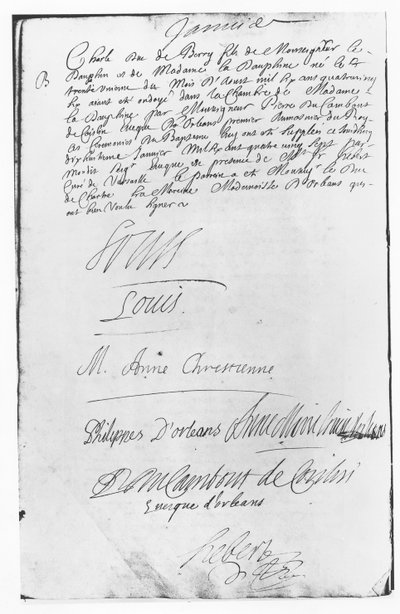 Janvier
B
Charle Duc de Berry fils de Monseigneur le
Dauphin et de Madame la Dauphine né le
trente unieme du Mois D'Aoust mil six cens quatre vingt
six avent et ondoyé dans la Chambre de Madame
la Dauphine par Monseigneur Pierre Du Cambout
de Coislin Evêque D'Orleans premier Aumosnier du Roy
les Ceremonies du Baptesme luy ont esté supplées
dix huitieme Janvier Mil six cent quatre vingt sept par
mondit Evêque en presence de Mr Hebert
Curé de Versaille le parrain a eté Monseigr le Duc
de Chartre la Mareine Mademoiselle D'Orleans qui
ont bien voulu signer
Louis
Louis
M. Anne Chrestienne
Philippes D'orleans Anne Marie Louise d'orleans
P Du Cambout de Coislin
Evesque d'orleans
hebert